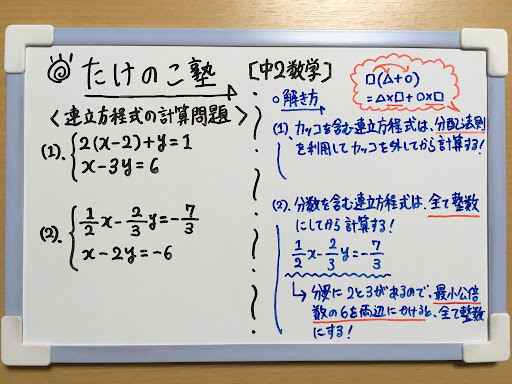 たけのこ塾 [中2数学]
<連立方程式の計算問題>
(1). { 2(x-2)+y=1
x-3y=6
(2). { 1/2 x - 2/3 y = - 7/3
x-2y=-6
□(△+○)
=△×□+○×□
○解き方
(1). カッコを含む連立方程式は、分配法則
を利用してカッコを外してから計算する!
(2). 分数を含む連立方程式は、全て整数
にしてから計算する!
1/2 x - 2/3 y = - 7/3
↳分母に2と3があるので、最小公倍
数の6を両辺にかけると、全て整数
にする!